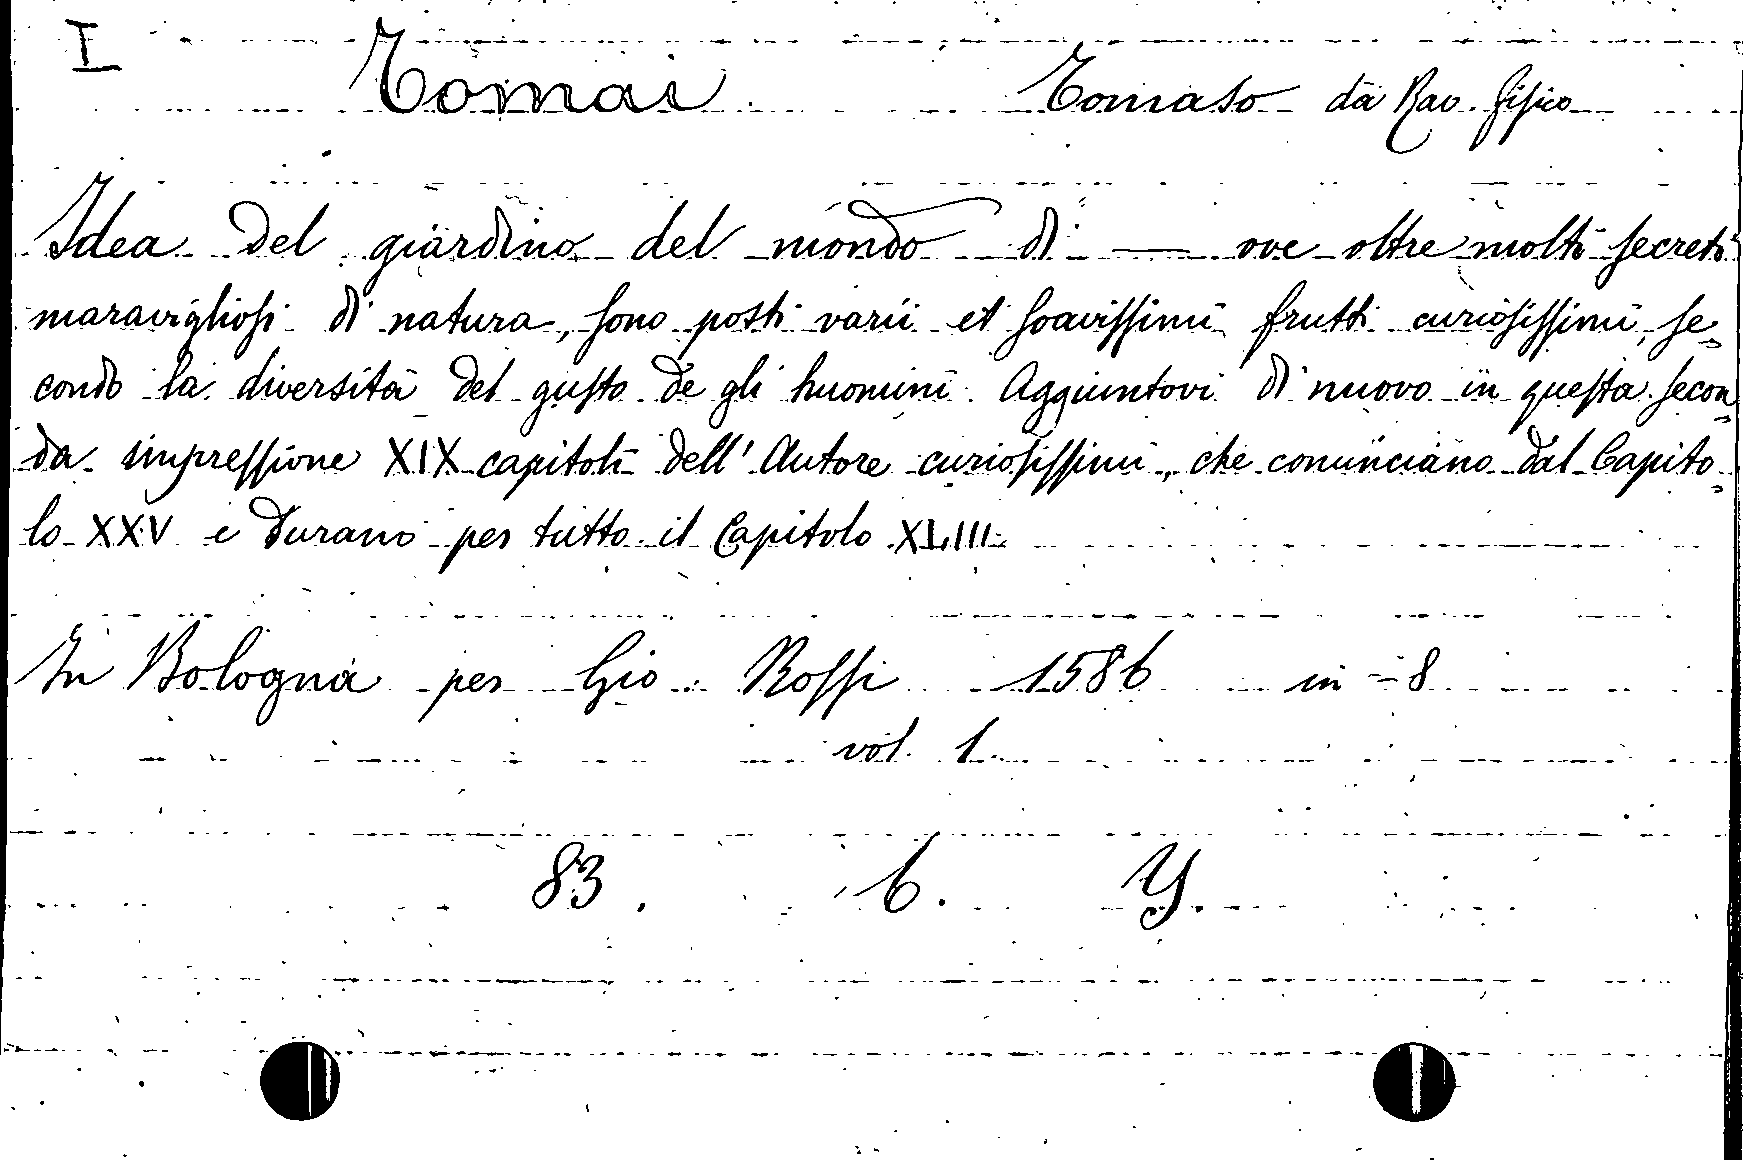 I
Tomai Tomaso da Rav. fisico
Idea del giardino del mondo di — ove oltre molti secreti
maravigliosi di natura, sono posti varii et soavissimi frutti curiosissimi, se„
condo la diversità del gusto de gli huomini. Aggiuntovi di nuovo in questa secon„
da impressione XIX capitoli dell' Autore curiosissimi, che cominciano dal Capito„
lo XXV e durano per tutto il Capitolo XLIII.
In Bologna per Gio. Rossi 1586 in-8
vol. 1.
83. b. Y.